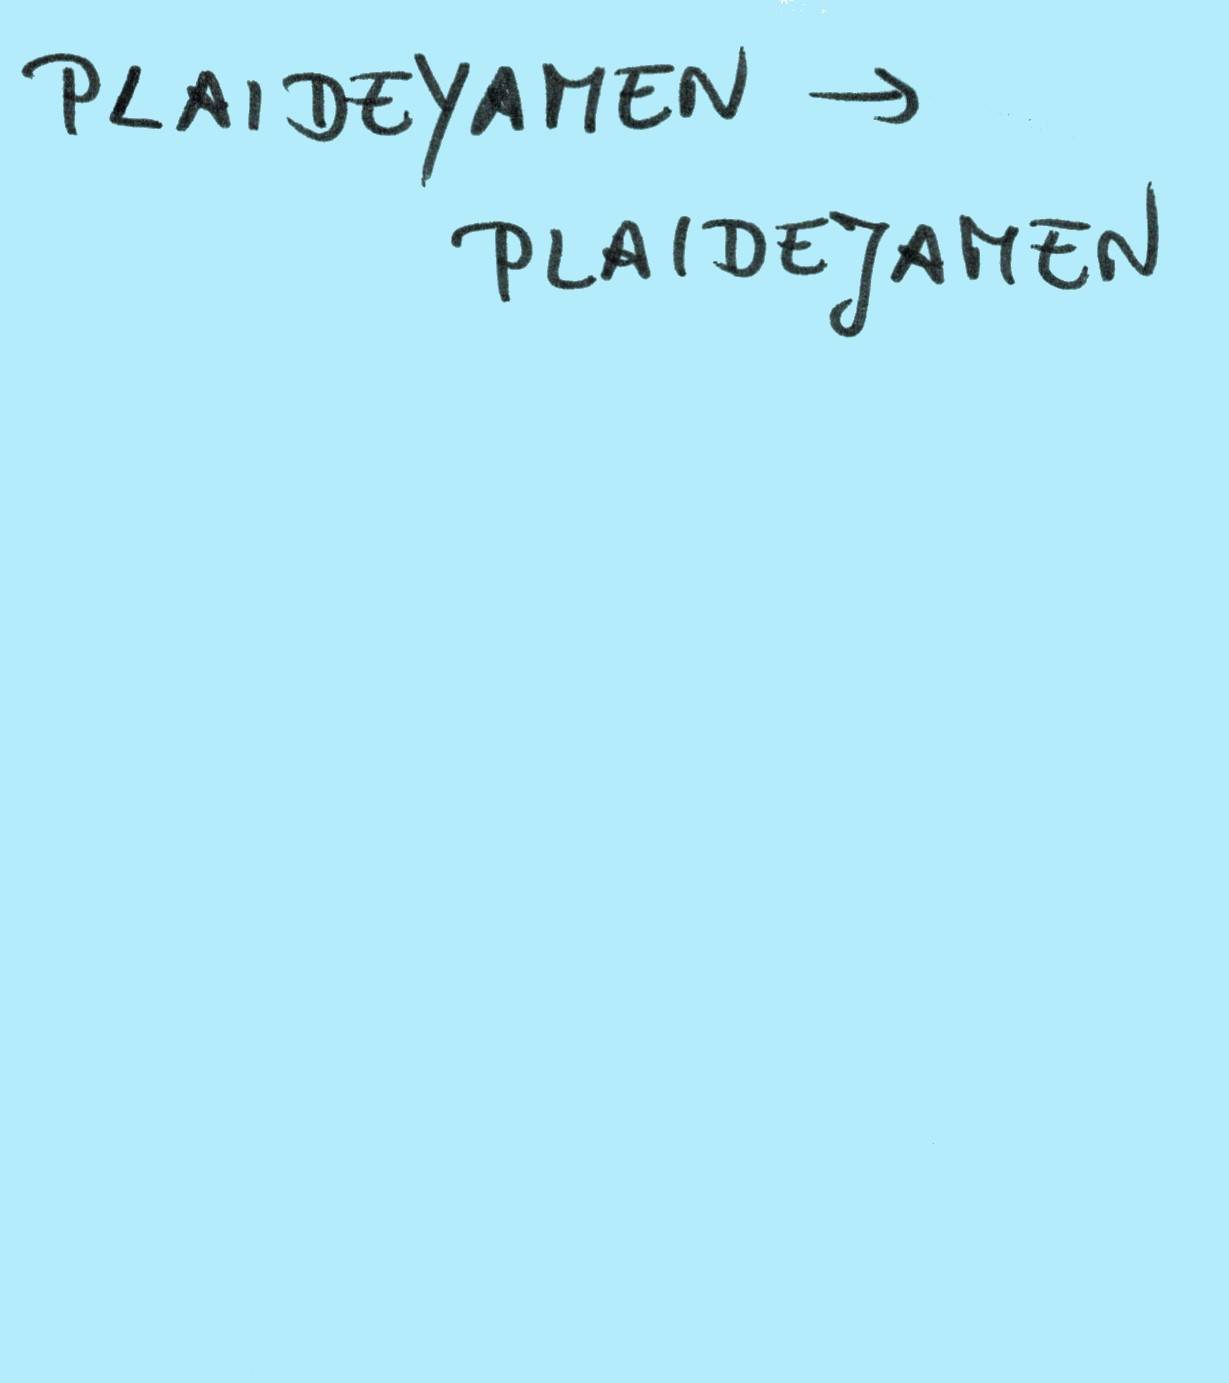 PLAIDEYAMEN →
PLAIDEJAMEN